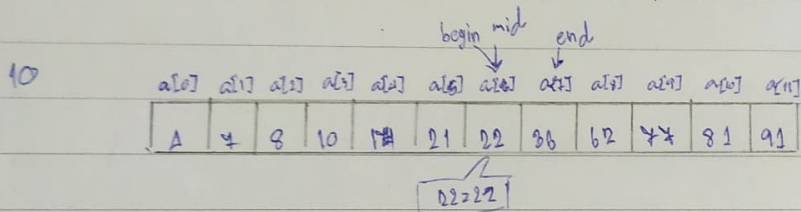 begin mid end
10 a[0] a[1] a[2] a[3] a[4] a[5] a[6] a[7] a[8] a[9] a[10] a[11]
7 8 10 21 22 36 62 77 81 91
22=22